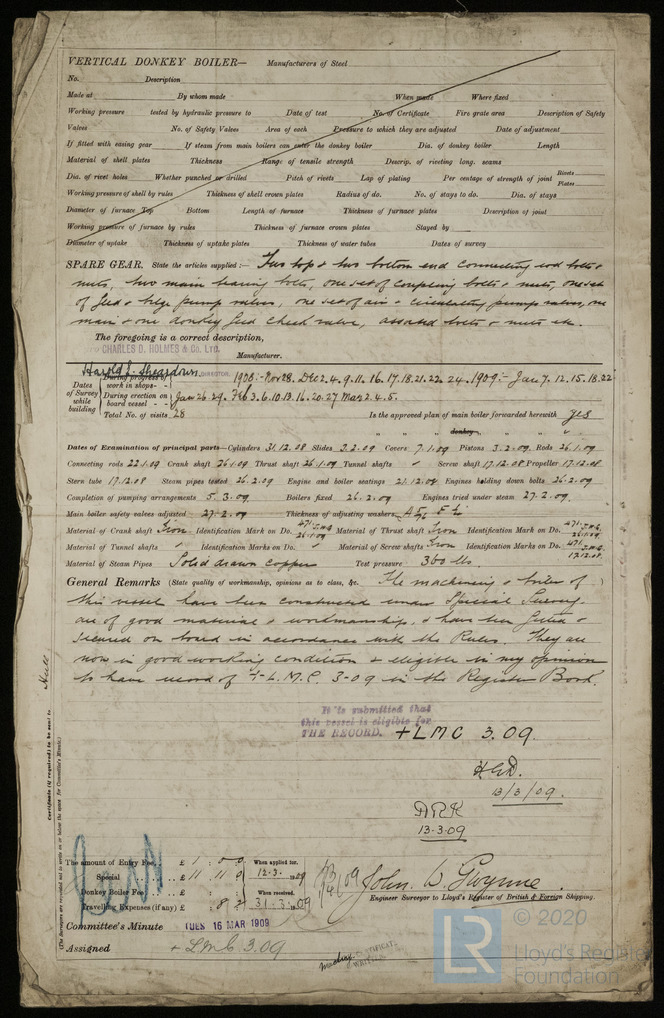 VERTICAL DONKEY BOILER— Manufacturers of Steel
No. Description
Made at By whom made When made Where fixed
Working pressure tested by hydraulic pressure to Date of test No. of Certificate Fire grate area Description of Safety
Valves No. of Safety Valves Area of each Pressure to which they are adjusted Date of adjustment
If fitted with easing gear If steam from main boilers can enter the donkey boiler Dia. of donkey boiler Length
Material of shell plates Thickness Range of tensile strength Descrip. of riveting long. seams
Dia. of rivet holes Whether punched or drilled Pitch of rivets Lap of plating Per centage of strength of joint Rivets Plates
Working pressure of shell by rules Thickness of shell crown plates Radius of do. No. of stays to do. Dia. of stays
Diameter of furnace Top Bottom Length of furnace Thickness of furnace plates Description of joint
Working pressure of furnace by rules Thickness of furnace crown plates Stayed by
Diameter of uptake Thickness of uptake plates Thickness of water tubes Dates of survey
SPARE GEAR. State the articles supplied:— Two top & two bottom end connecting rod bolts &
nuts, two main bearing bolts, one set of coupling bolts & nuts, one set
of feed & bilge pump valves, one set of air & circulating pump valves, one
main & one donkey feed check valve, assorted bolts & nuts etc.
The foregoing is a correct description,
CHARLES D. HOLMES & Co. LTD.
Manufacturer.
Harold E. Sheardown DIRECTOR.
Dates of Survey while building
During progress of work in shops - - 1908:- Nov 28. Dec 2. 4. 9. 11. 16. 17. 18. 21. 22. 24. 1909:- Jan 7. 12. 15. 18. 22
During erection on board vessel - - - Jan 26. 29. Feb 3. 6. 10. 13. 16. 20. 27 Mar 2. 4. 5.
Total No. of visits 28 Is the approved plan of main boiler forwarded herewith yes
" " " donkey " "
Dates of Examination of principal parts—Cylinders 31.12.08 Slides 3.2.09 Covers 7.1.09 Pistons 3.2.09 Rods 26.1.09
Connecting rods 22.1.09 Crank shaft 26.1.09 Thrust shaft 26.1.09 Tunnel shafts Screw shaft 17.12.08 Propeller 17.12.08
Stern tube 17.12.08 Steam pipes tested 26.2.09 Engine and boiler seatings 21.12.08 Engines holding down bolts 26.2.09
Completion of pumping arrangements 5.3.09 Boilers fixed 26.2.09 Engines tried under steam 27.2.09
Main boiler safety valves adjusted 27.2.09 Thickness of adjusting washers
Material of Crank shaft Iron Identification Mark on Do. 471 26.1.09 Material of Thrust shaft Iron Identification Mark on Do. 471 26.1.09
Material of Tunnel shafts Identification Marks on Do. Material of Screw shafts Iron Identification Marks on Do. 471 17.12.08
Material of Steam Pipes Solid drawn copper Test pressure 360 lbs
General Remarks (State quality of workmanship, opinions as to class, &c. The machinery & boiler of )
this vessel have been constructed under Special Survey,
are of good material & workmanship, & have been fitted &
secured on board in accordance with the Rules. They are
now in good working condition & eligible in my opinion
to have record of + L.M.C. 3-09 in the Register Book.
It is submitted that
this vessel is eligible for
THE RECORD. + LMC 3.09.
13/3/09.
13.3.09
Hull
Certificate (if required) to be sent to
(The Surveyors are requested not to write on or below the space for Committee's Minute.)
The amount of Entry Fee .. £ 1 : 0 : 0 When applied for,
Special .. .. £ 11 : 11 : 0 12.3. 1909
Donkey Boiler Fee .. .. £ : : When received,
Travelling Expenses (if any) £ : 8 : 2 31.3.1909
John W Gwynne.
Engineer Surveyor to Lloyd's Register of British & Foreign Shipping.
Committee's Minute TUES 16 MAR 1909
Assigned + LMC 3.09
CERTIFICATE
WRITTEN
LR
© 2020
Lloyd's Register
Foundation